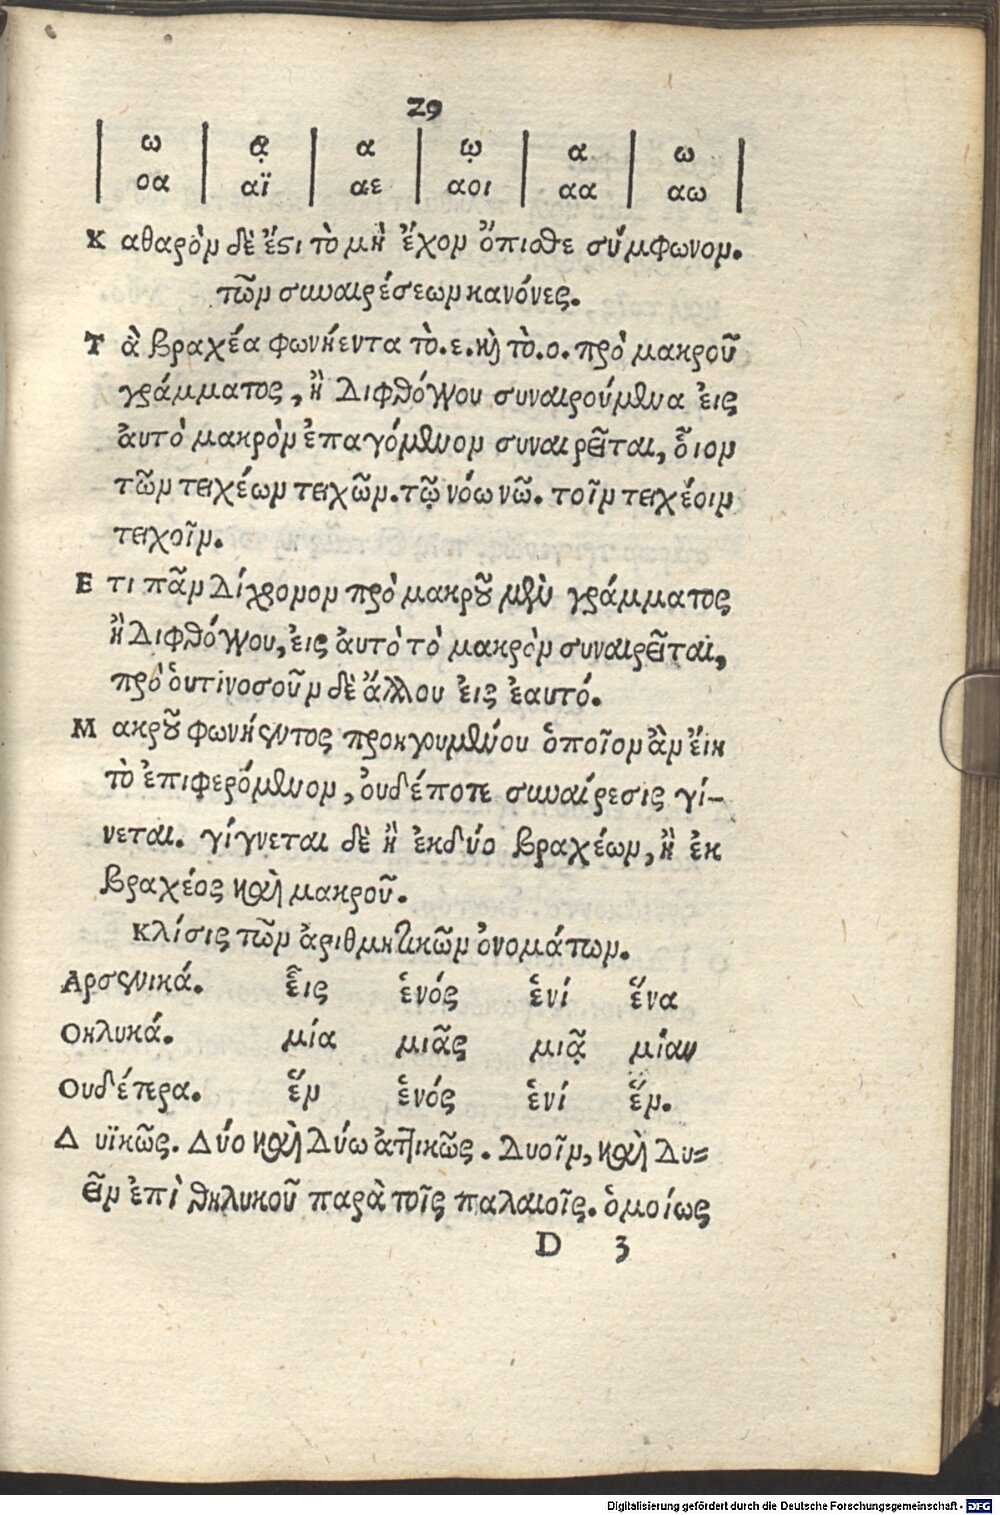 29
ω | ᾳ | α | ῳ | α | ω
οα | αϊ | αε | αοι | αα | αω
Καθαρὸν δὲ ἔστι τὸ μὴ ἔχον ὄπισθε σύμφωνον.
τῶν συναιρέσεων κανόνες.
Τὰ βραχέα φωνήεντα τὸ. ε. καὶ τὸ. ο. πρὸ μακροῦ
γράμματος, ἢ διφθόγγου συναιρούμενα ἐις
ἀυτὸ μακρὸν ἐπαγόμενον συναιρεῖται, ὅιον
τῶν τειχέων τειχῶν. τῷ νόω νῶ. τοῖν τειχέοιν
τειχοῖν.
Ετι πᾶν δίχρονον πρὸ μακροῦ μὲν γράμματος
ἢ διφθόγγου, ἐις ἀυτὸ τὸ μακρὸν συναιρεῖται,
πρὸ ὁυτινοσοῦν δὲ ἄλλου ἐις ἑαυτό.
Μακροῦ φωνήεντος προηγουμένου ὁποῖον ἂν ἔιη
τὸ ἐπιφερόμενον, ὀυδέποτε συναίρεσις γί-
νεται. γίγνεται δὲ ἢ ἐκ δύο βραχέων, ἢ ἐκ
βραχέος καὶ μακροῦ.
Κλίσις τῶν ἀριθμητικῶν ὀνομάτων.
Αρσενικά. ἕις ἑνός ἑνί ἕνα
Θηλυκά. μία μιᾶς μιᾷ μίαν
Ουδέτερα. ἕν ἑνός ἑνί ἕν.
Δυϊκῶς. Δύο καὶ Δύω ἀττικῶς. Δυοῖν, καὶ Δυ=
εῖν ἐπὶ θηλυκοῦ παρὰ τοῖς παλαιοῖς. ὁμοίως
D 3
Digitalisierung gefördert durch die Deutsche Forschungsgemeinschaft - DFG